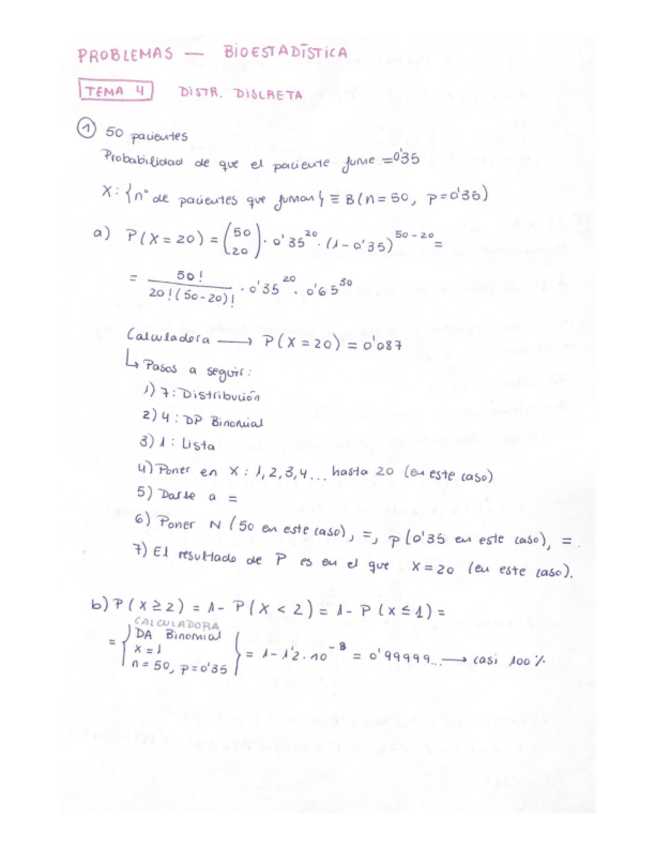 PROBLEMAS — BIOESTADÍSTICA
TEMA 4 DISTR. DISCRETA
① 50 pacientes
Probabilidad de que el paciente fume = 0'35
X: {nº de pacientes que fuman} ≡ B(n=50, p=0'35)
a) P(X=20) = (50 20) · 0'35^20 · (1-0'35)^50-20 =
= 50! / 20!(50-20)! · 0'35^20 · 0'65^30
Calculadora ⟶ P(X=20) = 0'087
↳ Pasos a seguir:
1) 7: Distribución
2) 4: DP Binomial
3) 1: Lista
4) Poner en X: 1, 2, 3, 4... hasta 20 (en este caso)
5) Darle a =
6) Poner N (50 en este caso), =, p (0'35 en este caso), =.
7) El resultado de P es en el que X=20 (en este caso).
b) P(X≥2) = 1- P(X<2) = 1- P(x≤1) =
CALCULADORA
= {DA Binomial
x=1
n=50, p=0'35} = 1-1'2·10^-8 = 0'99999... ⟶ casi 100%